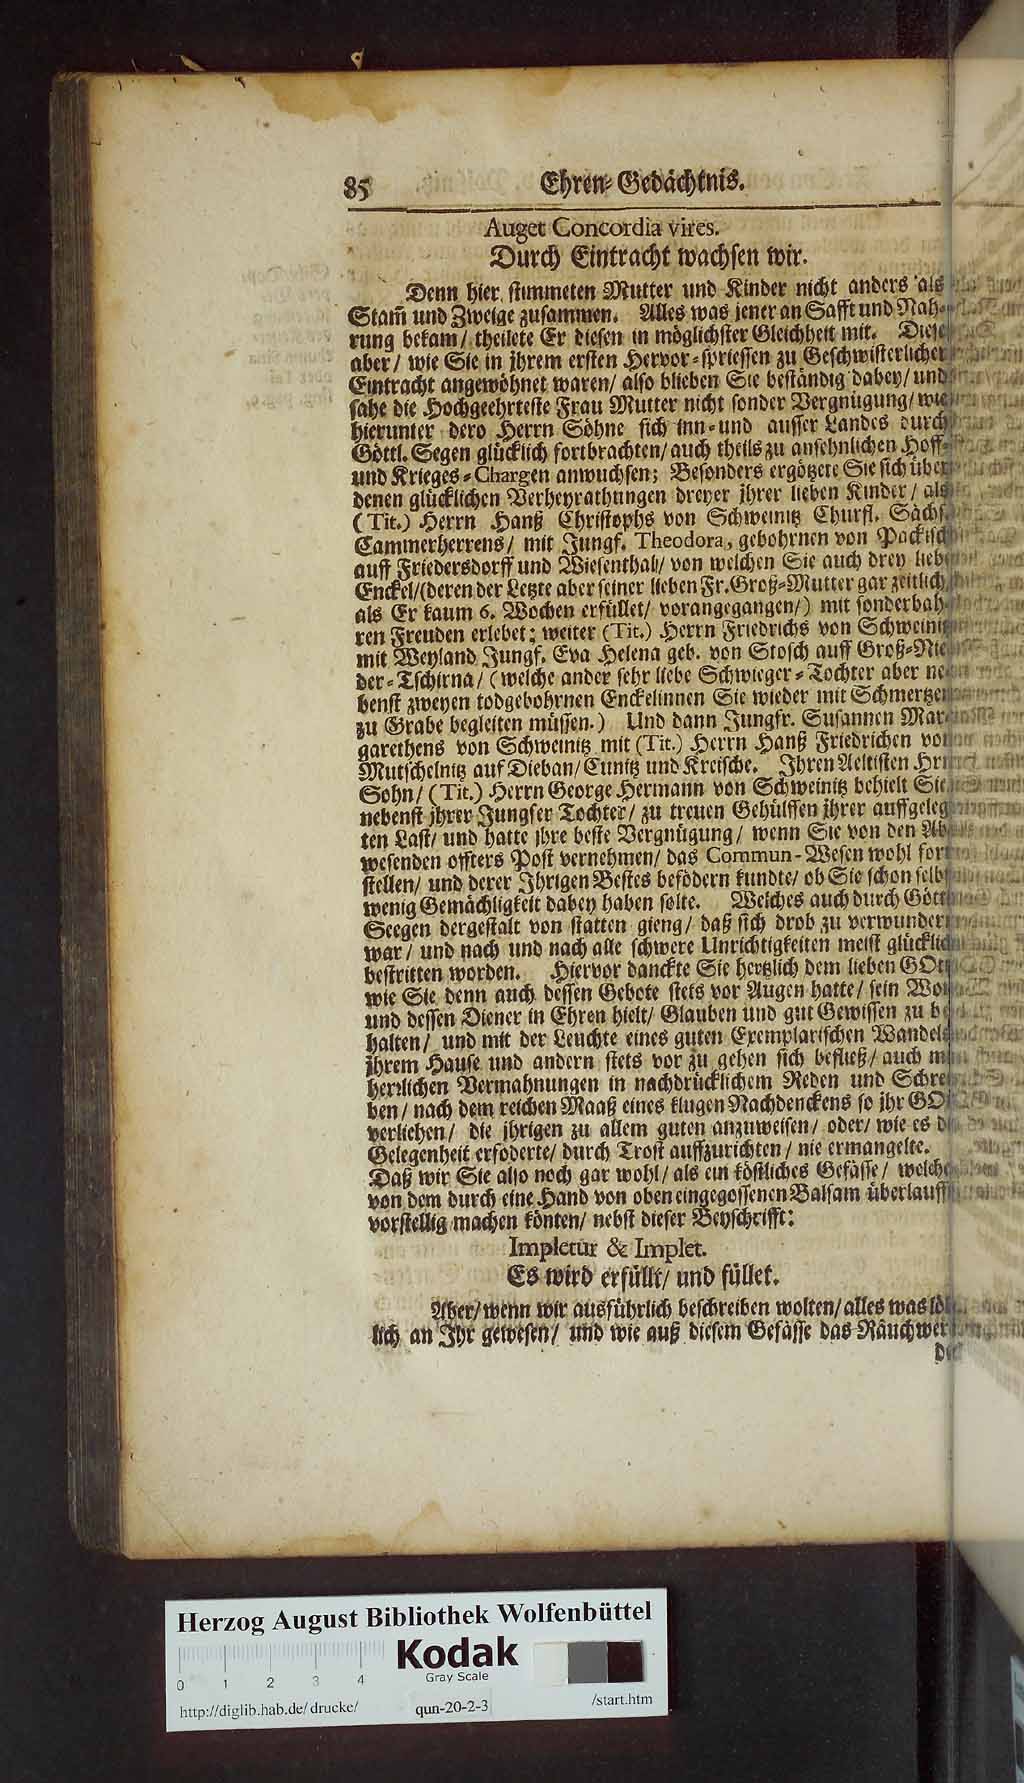 85 Ehren-Gedächtnis.
Auget Concordia vires.
Durch Eintracht wachsen wir.
Denn hier stimmeten Mutter und Kinder nicht anders als
Stam̃ und Zweige zusammen. Alles was jener an Safft und Nah-
rung bekam/ theilete Er diesen in möglichster Gleichheit mit. Diese
aber/ wie Sie in jhrem ersten Hervor-spriessen zu Geschwisterlicher
Eintracht angewöhnet waren/ also blieben Sie beständig dabey/ und
sahe die Hochgeehrteste Frau Mutter nicht sonder Vergnügung/ wie
hierunter dero Herrn Söhne sich inn-und ausser Landes durch
Göttl. Segen glücklich fortbrachten/ auch theils zu ansehnlichen Hoff-
und Krieges-Chargen anwuchsen; Besonders ergötzete Sie sich über
denen glücklichen Verheyrathungen dreyer jhrer lieben Kinder/ als
(Tit.) Herrn Hanß Christophs von Schweinitz Churfl. Sächs.
Cammerherrens/ mit Jungf. Theodora, gebohrnen von Packisch
auff Friedersdorff und Wiesenthal/ von welchen Sie auch drey lieb
Enckel/(deren der Letzte aber seiner lieben Fr. Groß-Mutter gar zeitlich
als Er kaum 6. Wochen erfüllet/ vorangegangen/) mit sonderbah-
ren Freuden erlebet; weiter (Tit.) Herrn Friedrichs von Schweinitz
mit Weyland Jungf. Eva Helena geb. von Stosch auff Groß-Nie
der-Tschirna/ (welche ander sehr liebe Schwieger-Tochter aber ne
benst zweyen todgebohrnen Enckelinnen Sie wieder mit Schmertzen
zu Grabe begleiten müssen.) Und dann Jungfr. Susannen Mar-
garethens von Schweinitz mit (Tit.) Herrn Hanß Friedrichen von
Mutschelnitz auf Dieban/ Cunitz und Kreische. Ihren Aeltisten Hrn
Sohn/ (Tit.) Herrn George Hermann von Schweinitz behielt Sie
nebenst jhrer Jungfer Tochter/ zu treuen Gehülffen jhrer auffgeleg
ten Last/ und hatte jhre beste Vergnügung/ wenn Sie von den Ab
wesenden öffters Post vernehmen/ das Commun-Wesen wohl fort
stellen/ und derer Jhrigen Bestes befödern kundte/ ob Sie schon selbst
wenig Gemächligkeit dabey haben solte. Welches auch durch Gött
Seegen dergestalt von statten gieng/ daß sich drob zu verwundern
war/ und nach und nach alle schwere Unrichtigkeiten meist glücklich
bestritten worden. Hiervor danckte Sie hertzlich dem lieben GOtt
wie Sie denn auch dessen Gebote stets vor Augen hatte/ sein Wor
und dessen Diener in Ehren hielt/ Glauben und gut Gewissen zu be
halten/ und mit der Leuchte eines guten Exemplarischen Wandels
jhrem Hause und andern stets vor zu gehen sich befließ/ auch m
hertzlichen Vermahnungen in nachdrücklichem Reden und Schrei
ben/ nach dem reichen Maaß eines klugen Nachdenckens so jhr GO
verliehen/ die jhrigen zu allem guten anzuweisen/ oder/ wie es d
Gelegenheit erfoderte/ durch Trost auffzurichten/ nie ermangelte.
Daß wir Sie also noch gar wohl/ als ein köstliches Gefässe/ welche
von dem durch eine Hand von oben eingegossenen Balsam überlauff
vorstellig machen könten/ nebst dieser Beyschrifft:
Impletur & Implet.
Es wird erfüllt/ und füllet.
Aber/ wenn wir ausführlich beschreiben wolten/ alles was löb
lich an Jhr gewesen/ und wie auß diesem Gefässe das Räuchwer
Herzog August Bibliothek Wolfenbüttel
Kodak
Gray Scale
0 1 2 3 4
http://diglib.hab.de/drucke/ qun-20-2-3 /start.htm